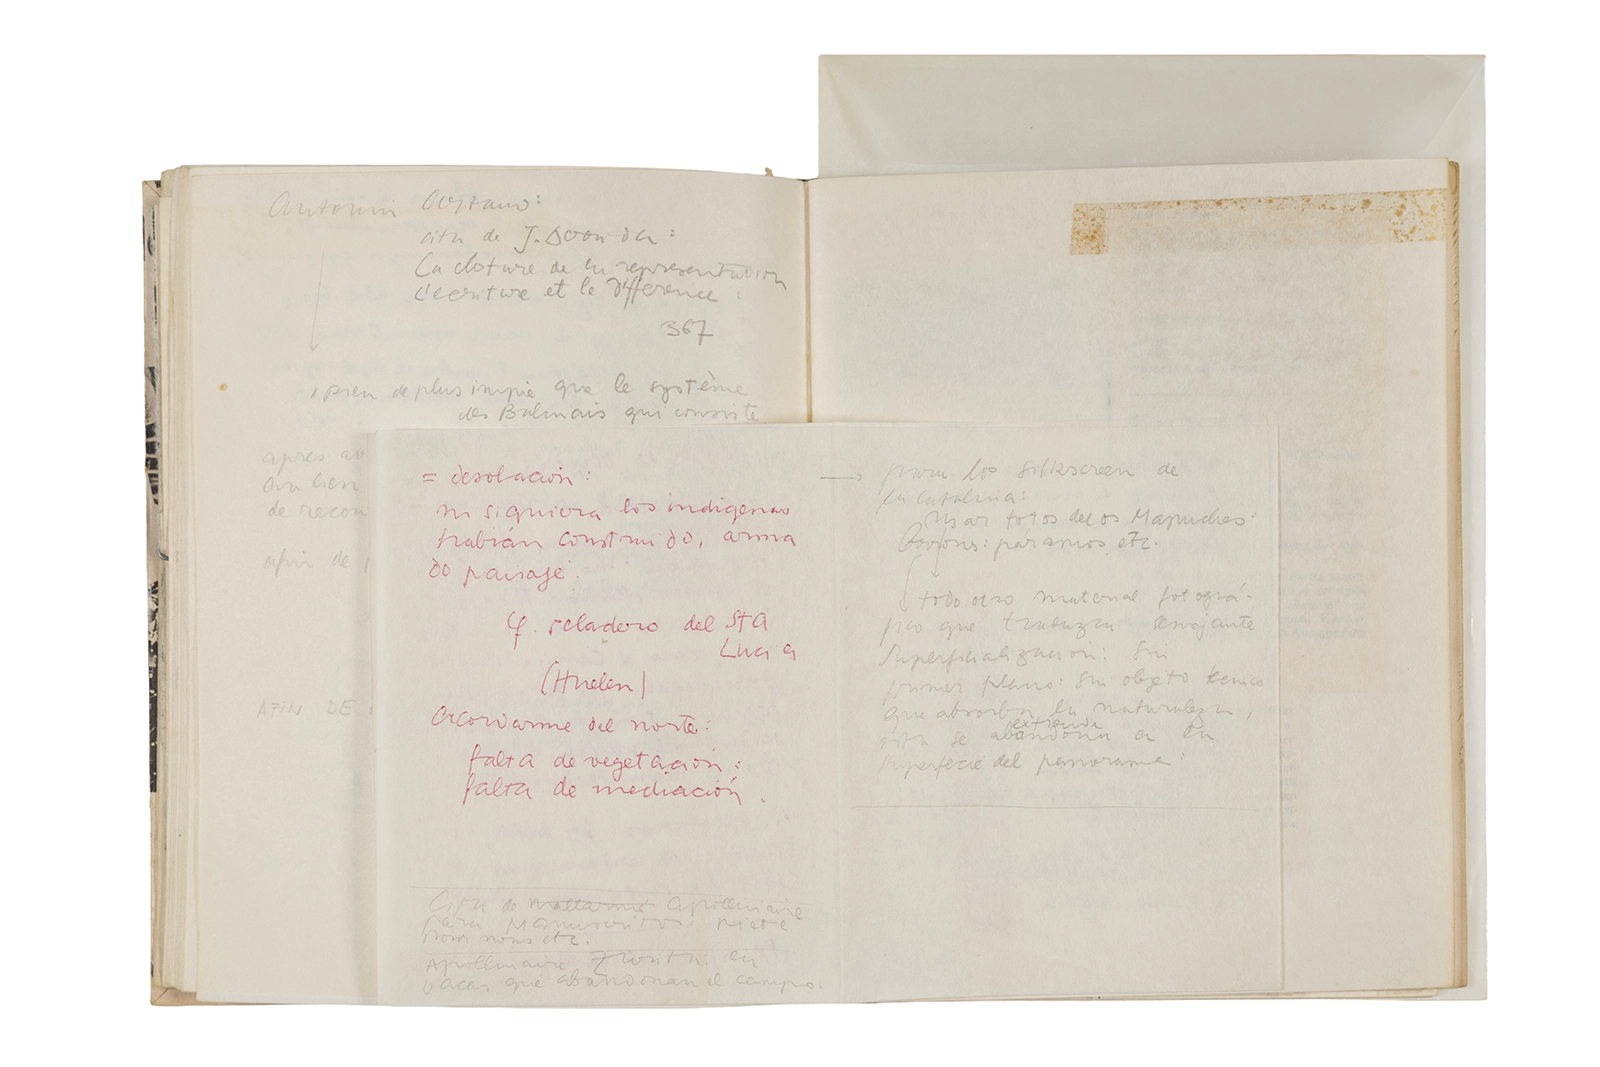 Antonin Artaud:
cita de J. Derrida:
La cloture de la representation
L'ecriture et la Difference:
367
rien de plus impie que le système
des Balinais qui consiste
apres a
un lien
de recon
afin de
AFIN DE
= desolación:
ni siquiera los indigenas
habián construido, arma
do paisaje.
rodadero del STA
Lucia
(Huelen)
acordarme del norte:
falta de vegetación:
falta de mediación.
Cita de mallarmé Apollinaire
para manuscritos: pieté
nous etc.
Apollinaire en
vacas que abandonan el campo.
→ para los silkscreen de
la catalina:
usar fotos de los Mapuches:
páramos etc.
todo otro material fotográ-
fico que traduzca semejante
superficialización: sin
primer plano: sin objeto tecnico
que absorba la naturaleza,
esta se abandona extiende a la
superfecie del panorama: